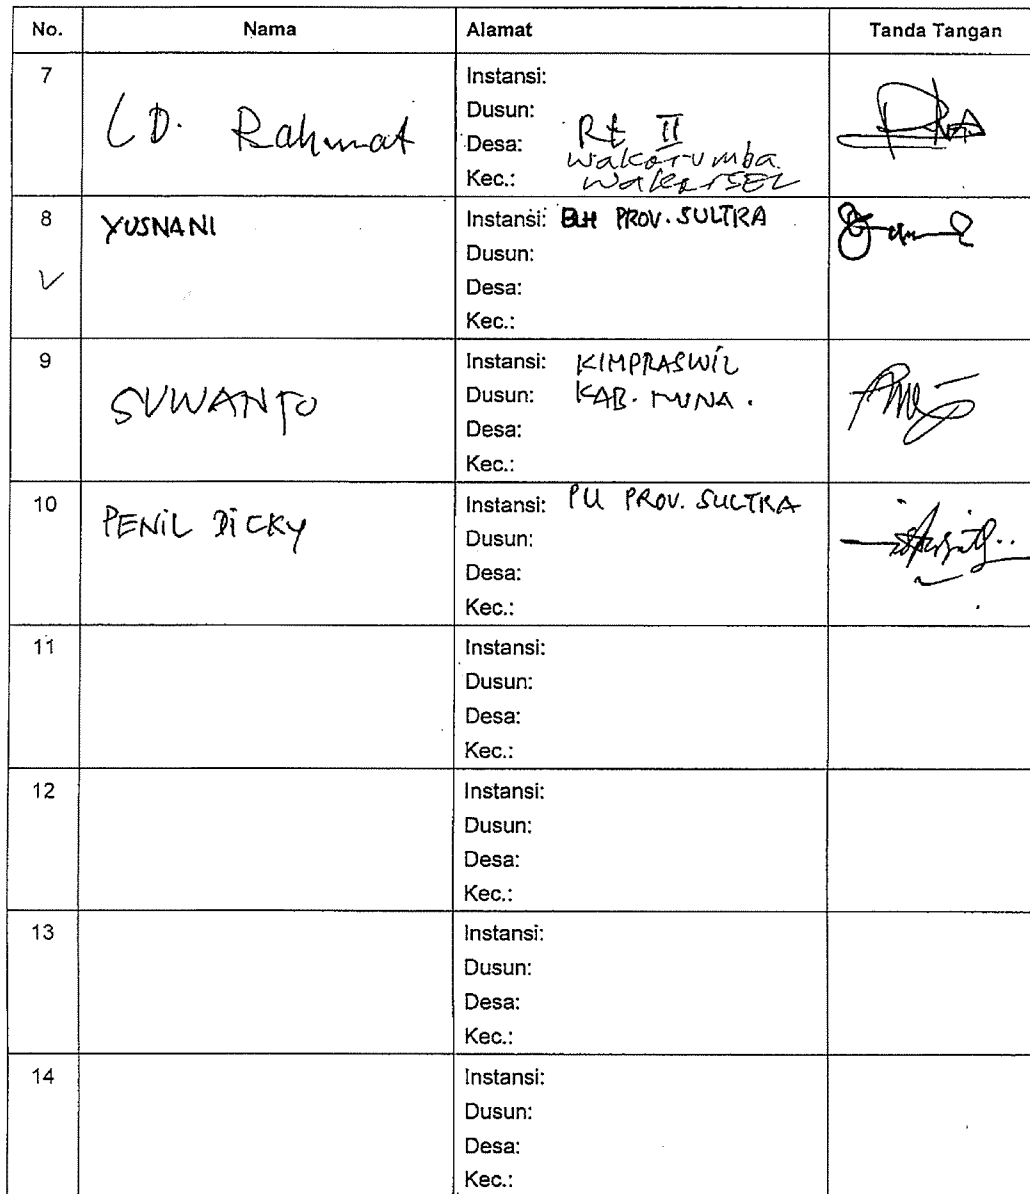 No. Nama Alamat Tanda Tangan
7 LD. Rahmat
Instansi:
Dusun:
Desa: Rt II
Wakorumba
Kec.: WakorSEL
8 YUSNANI
Instansi: BLH PROV. SULTRA
Dusun:
Desa:
Kec.:
9 SUWANTO
Instansi: KIMPRASWIL
Dusun: KAB. MUNA.
Desa:
Kec.:
10 PENIL DICKY
Instansi: PU PROV. SULTRA
Dusun:
Desa:
Kec.:
11
Instansi:
Dusun:
Desa:
Kec.:
12
Instansi:
Dusun:
Desa:
Kec.:
13
Instansi:
Dusun:
Desa:
Kec.:
14
Instansi:
Dusun:
Desa:
Kec.: